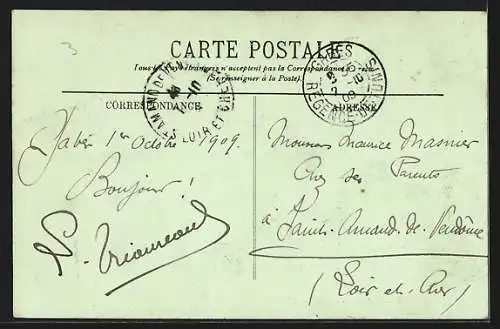 3
CARTE POSTALE
Tous les pays étrangers n'acceptent pas la Correspondance au recto
(Se renseigner à la Poste).
CORRESPONDANCE
ADRESSE
LOIR ET CHER
REGENCE DE TUNIS
Gabès 1er Octobre 1909.
Bonjour!
Monsieur Maurice
Chez ses Parents
à Saint-Amand-de-Vendôme
(Loir et Cher)